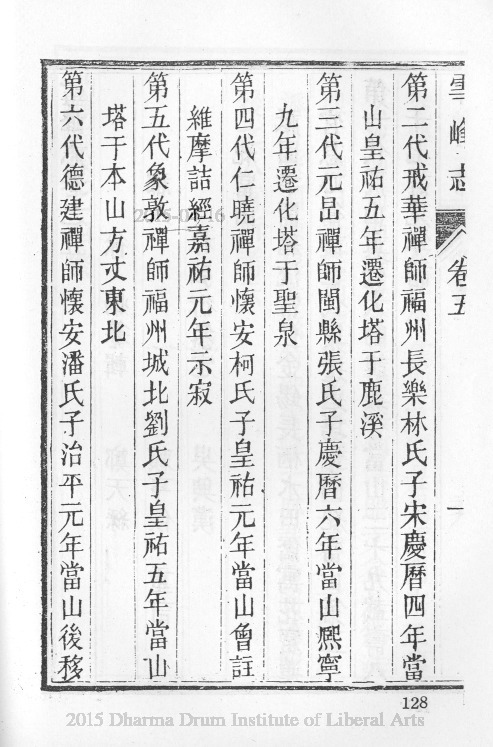 雪峰志 卷五 一
第二代戒華禪師福州長樂林氏子宋慶曆四年當
山皇祐五年遷化塔于鹿溪
第三代元昷禪師閩縣張氏子慶曆六年當山熈寧
九年遷化塔于聖泉
第四代仁曉禪師懷安柯氏子皇祐元年當山會註
維摩詰經嘉祐元年示寂
第五代象敦禪師福州城北劉氏子皇祐五年當山
塔于本山方丈東北
第六代德建禪師懷安潘氏子治平元年當山後移
128
2015 Dharma Drum Institute of Liberal Arts